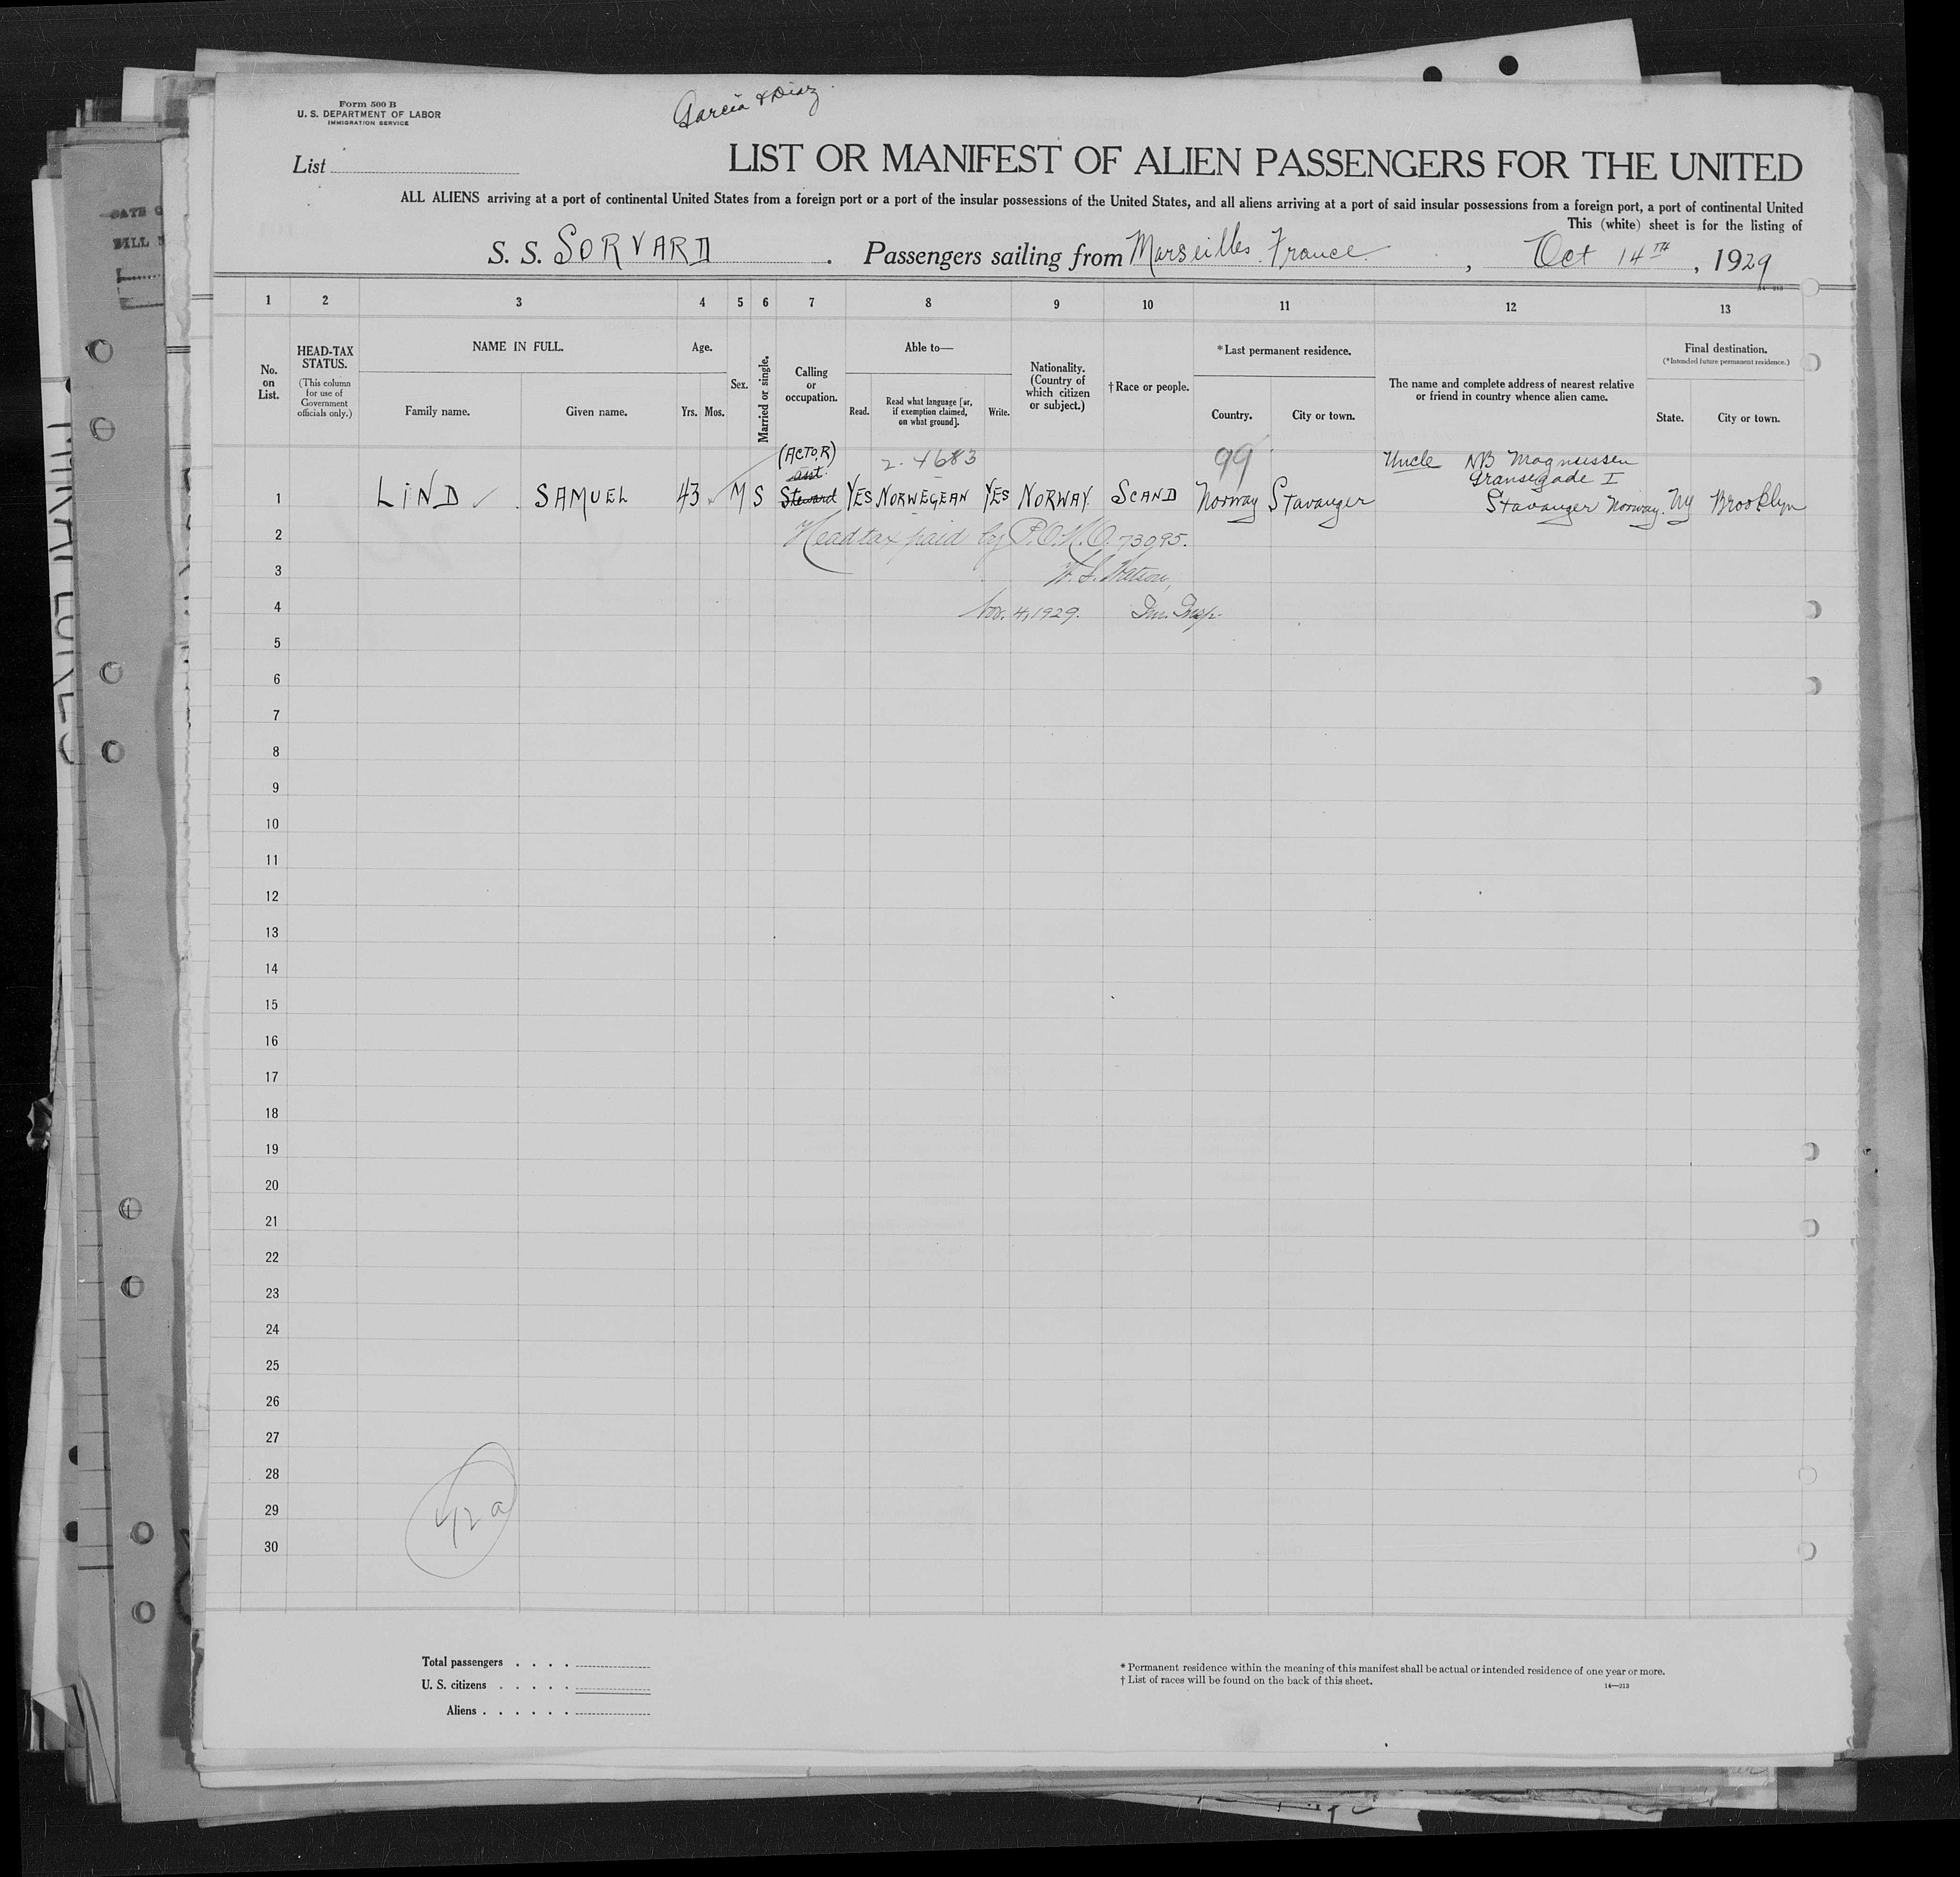 Form 500 B
U. S. DEPARTMENT OF LABOR
IMMIGRATION SERVICE
Garcia & Diaz
List
LIST OR MANIFEST OF ALIEN PASSENGERS FOR THE UNITED
ALL ALIENS arriving at a port of continental United States from a foreign port or a port of the insular possessions of the United States, and all aliens arriving at a port of said insular possessions from a foreign port, a port of continental United
This (white) sheet is for the listing of
S. S. SORVARD . Passengers sailing from Marseilles France , Oct 14TH , 1929
14—213
1 2 3 4 5 6 7 8 9 10 11 12 13
No. on List.
HEAD-TAX STATUS.
(This column for use of Government officials only.)
NAME IN FULL.
Family name. Given name.
Age.
Yrs. Mos.
Sex.
Married or single.
Calling or occupation.
Able to—
Read. Read what language [or, if exemption claimed, on what ground]. Write.
Nationality. (Country of which citizen or subject.)
†Race or people.
*Last permanent residence.
Country. City or town.
The name and complete address of nearest relative or friend in country whence alien came.
Final destination.
(*Intended future permanent residence.)
State. City or town.
(ACTOR) 2-4683 99 Uncle NB Magnussen
asst. Gransegade I
1 LIND SAMUEL 43 M S Steward YES NORWEGEAN YES NORWAY SCAND Norway Stavanger Stavanger Norway. Ny Brooklyn
2 Head tax paid by P.O.M.O. 73095.
3 W. S. Watson,
4 Nov. 4, 1929. Im. Insp.
5
6
7
8
9
10
11
12
13
14
15
16
17
18
19
20
21
22
23
24
25
26
27
28
29
30
42a
Total passengers . . . .
U. S. citizens . . . . .
Aliens . . . . . .
* Permanent residence within the meaning of this manifest shall be actual or intended residence of one year or more.
† List of races will be found on the back of this sheet.
14—213